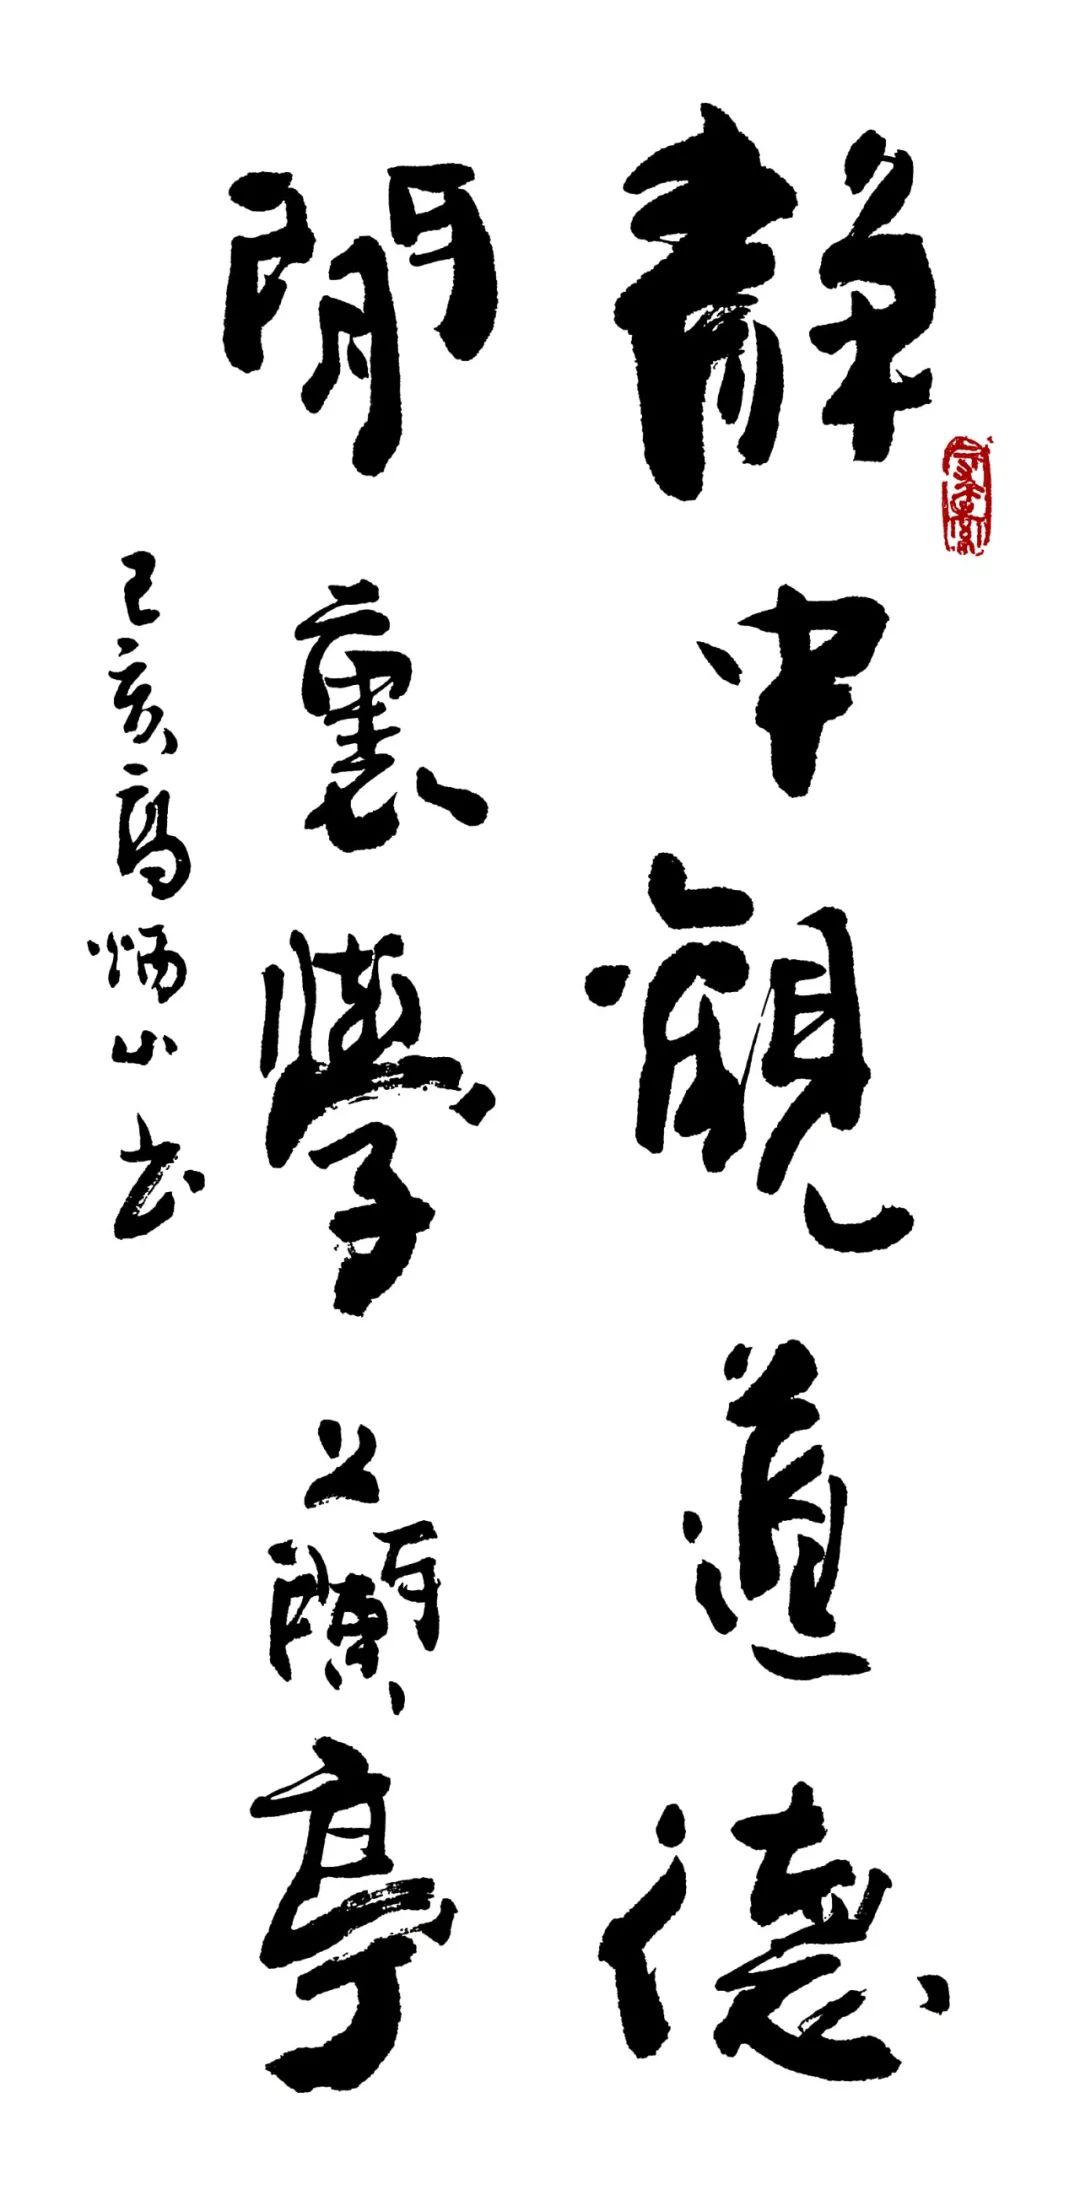 靜中觀道德
閒裏學蘭亭
己亥高炳山书